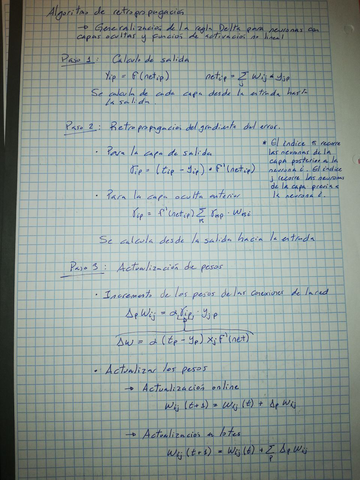 Algoritmo de retropropagación
→ Generalización de la regla Delta para neuronas con
capas ocultas y función de activación no lineal
Paso 1: Cálculo de salida
y_ip = f(net_ip)    net_ip = Σ_j w_ij · y_jp
Se calcula de cada capa desde la entrada hasta
la salida
Paso 2: Retropropagación del gradiente del error.
• Para la capa de salida
δ_ip = (t_ip - y_ip) · f'(net_ip)
• El índice n recorre
las neuronas de la
capa posterior a la
neurona i. El índice
j recorre las neuronas
de la capa previa a
la neurona i.
• Para la capa oculta anterior
δ_ip = f'(net_ip) Σ_n δ_np · w_ni
Se calcula desde la salida hacia la entrada
Paso 3: Actualización de pesos
• Incremento de los pesos de las conexiones de la red
Δ_p w_ij = α δ_ip · y_jp
Δw = α (t_p - y_p) x_j f'(net)
• Actualizar los pesos
→ Actualización online
w_ij (t+1) = w_ij (t) + Δ_p w_ij
→ Actualización en lotes
w_ij (t+1) = w_ij (t) + Σ_p Δ_p w_ij